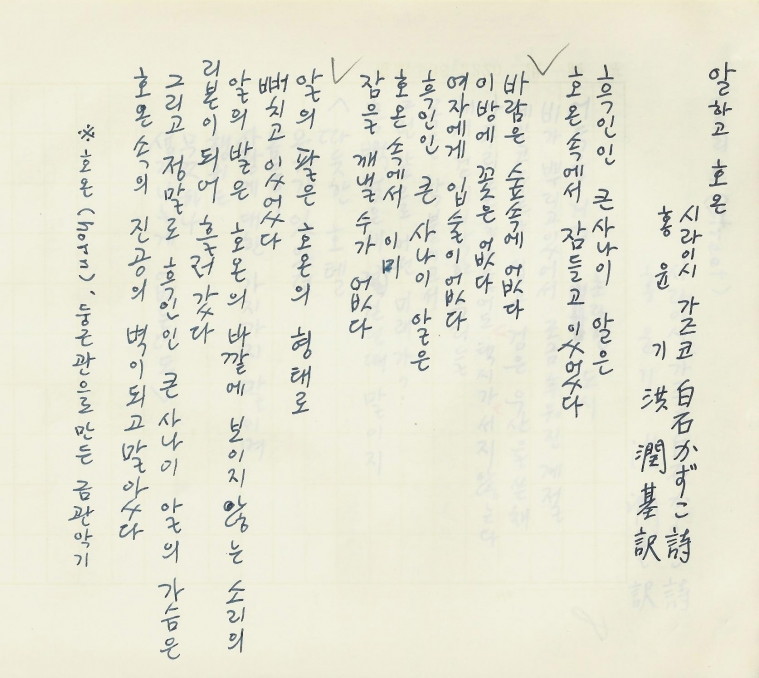 알하고 호온
시라이시 가즈코 白石かずこ詩
홍 윤 기 洪 潤 基 訳
흑인인 큰사나이 알은
호온속에서 잠들고 있었다
바람은 숲속에 없다
이방에 꽃은 없다
여자에게 입술이 없다
흑인인 큰 사나이 알은
호온 속에서 이미
잠을 깨낼 수가 없다
알의 팔은 호온의 형태로
뻐치고 있었다
알의 발은 호온의 바깥에 보이지 않는 소리의
리본이 되어 흘러 갔다
그리고 정말로 흑인인 큰 사나이 알의 가슴은
호온 속의 진공의 벽이되고 말았다
※ 호온 (horn), 둥근관을로 만든 금관악기